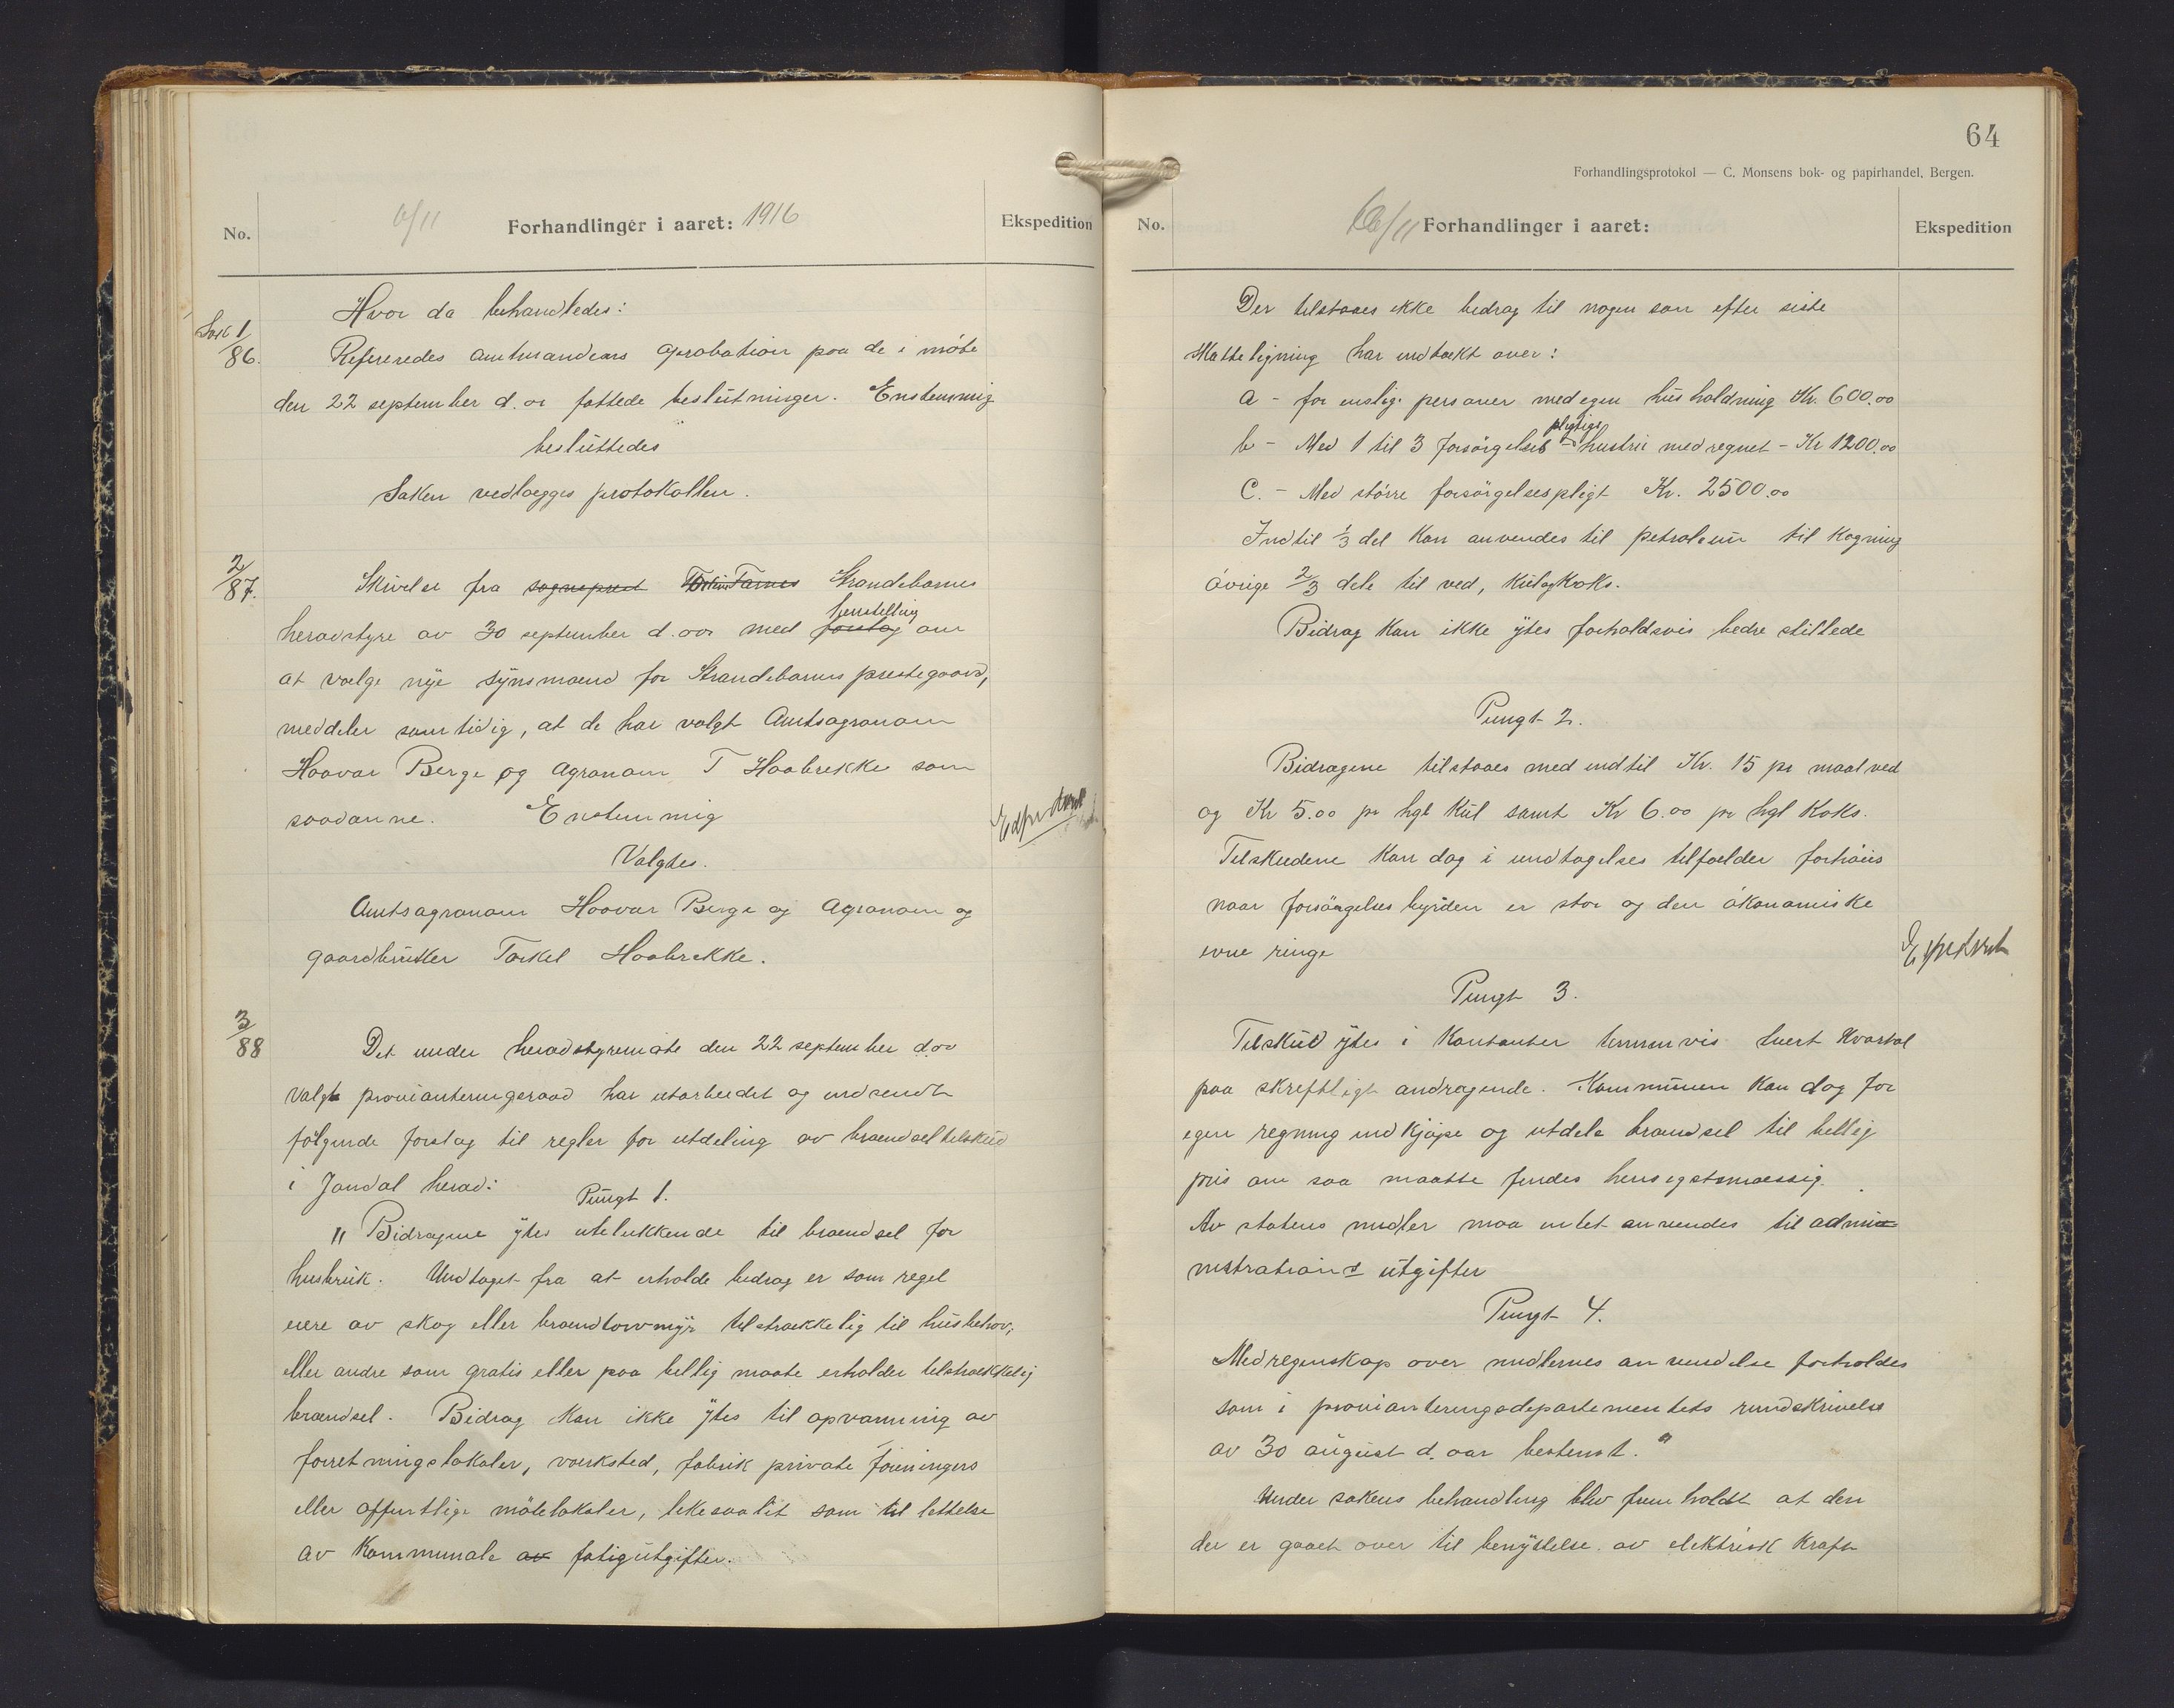 No.
6/11
Forhandlinger i aaret: 1916
Ekspedition
Hvor da behandledes:
Sak 1/86.
Refereredes amtmandens aprobation paa de i møte
den 22 september d. a. fattede beslutninger. Enstemmig
besluttedes
Saken vedlægges protokollen.
2/87.
Skrivelse fra sogneprest Tarnes Strandebarms
henstilling
heradstyre av 30 september d. aar med forslag om
at vælge nye synsmænd for Strandebarms prestegaard,
meddeler samtidig, at de har valgt Amtsagronom
Haavar Berge og Agronom T Haabrekke som
saadanne. Enstemmig
Valgtes.
Amtsagronom Haavar Berge og Agronom og
gaardbruker Torkel Haabrekke.
3/88
Det under heradstyremøte den 22 september d. aar
valgte provianteringsraad har utarbeidet og indsendt
følgende forslag til regler for utdeling av brændseltilskud
i Jondal herad:
Pungt 1.
" Bidragene ytes utelukkende til brændsel for
husbruk. Undtaget fra at erholde bidrag er som regel
eiere av skog eller brændtorvmyr tilstrækkelig til husbehov,
eller andre som gratis eller paa billig maate erholder tilstrækkelig
brændsel. Bidrag kan ikke ytes til opvarming av
foretningslokaler, værksted, fabrik private foreningers
eller offentlige møtelokaler, likesaalit som til lettelse
av kommunale av fatigutgifter.
64
Forhandlingsprotokol — C. Monsens bok- og papirhandel, Bergen.
No.
6/11
Forhandlinger i aaret:
Ekspedition
Der tilstaaes ikke bidrag til nogen som efter siste
skatteligning har indtækt over:
a - for enslige personer med egen husholdning Kr. 600.00
pligtige
b - Med 1 til 3 forsørgelses - hustru medregnet - Kr 1200.00
C. - Med større forsørgelsespligt Kr. 2500.00
Indtil 1/3 del kan anvendes til petroleum til kogning
øvrige 2/3 dele til ved, kul og koks.
Bidrag kan ikke ytes forholdsvis bedre stillede
Pungt 2.
Bidragene tilstaaes med indtil Kr. 15 pr maal ved
og Kr 5.00 pr hgl kul samt Kr 6.00 pr hgl koks.
Tilskudene kan dog i undtagelses tilfælder forhøies
naar forsørgelses byrden er stor og den økonomiske
evne ringe
Expedert
Pungt 3.
Tilskud ytes i kontanter terminvis hvert kvartal
paa skreftligt andragende. Kommunen kan dog for
egen regning indkjøpe og utdele brændsel til billig
pris om saa maatte findes hensigtsmæssig.
Av statens midler maa intet anvendes til admi
nistrations utgifter
Pungt 4.
Med regnskap over midlernes anvendelse forholdes
som i provianteringsdepartementets rundskrivelse
av 30 august d. aar bestemt. "
Under sakens behandling blev frem holdt at den
der er gaaet over til benyttelse av elektrisk kraft